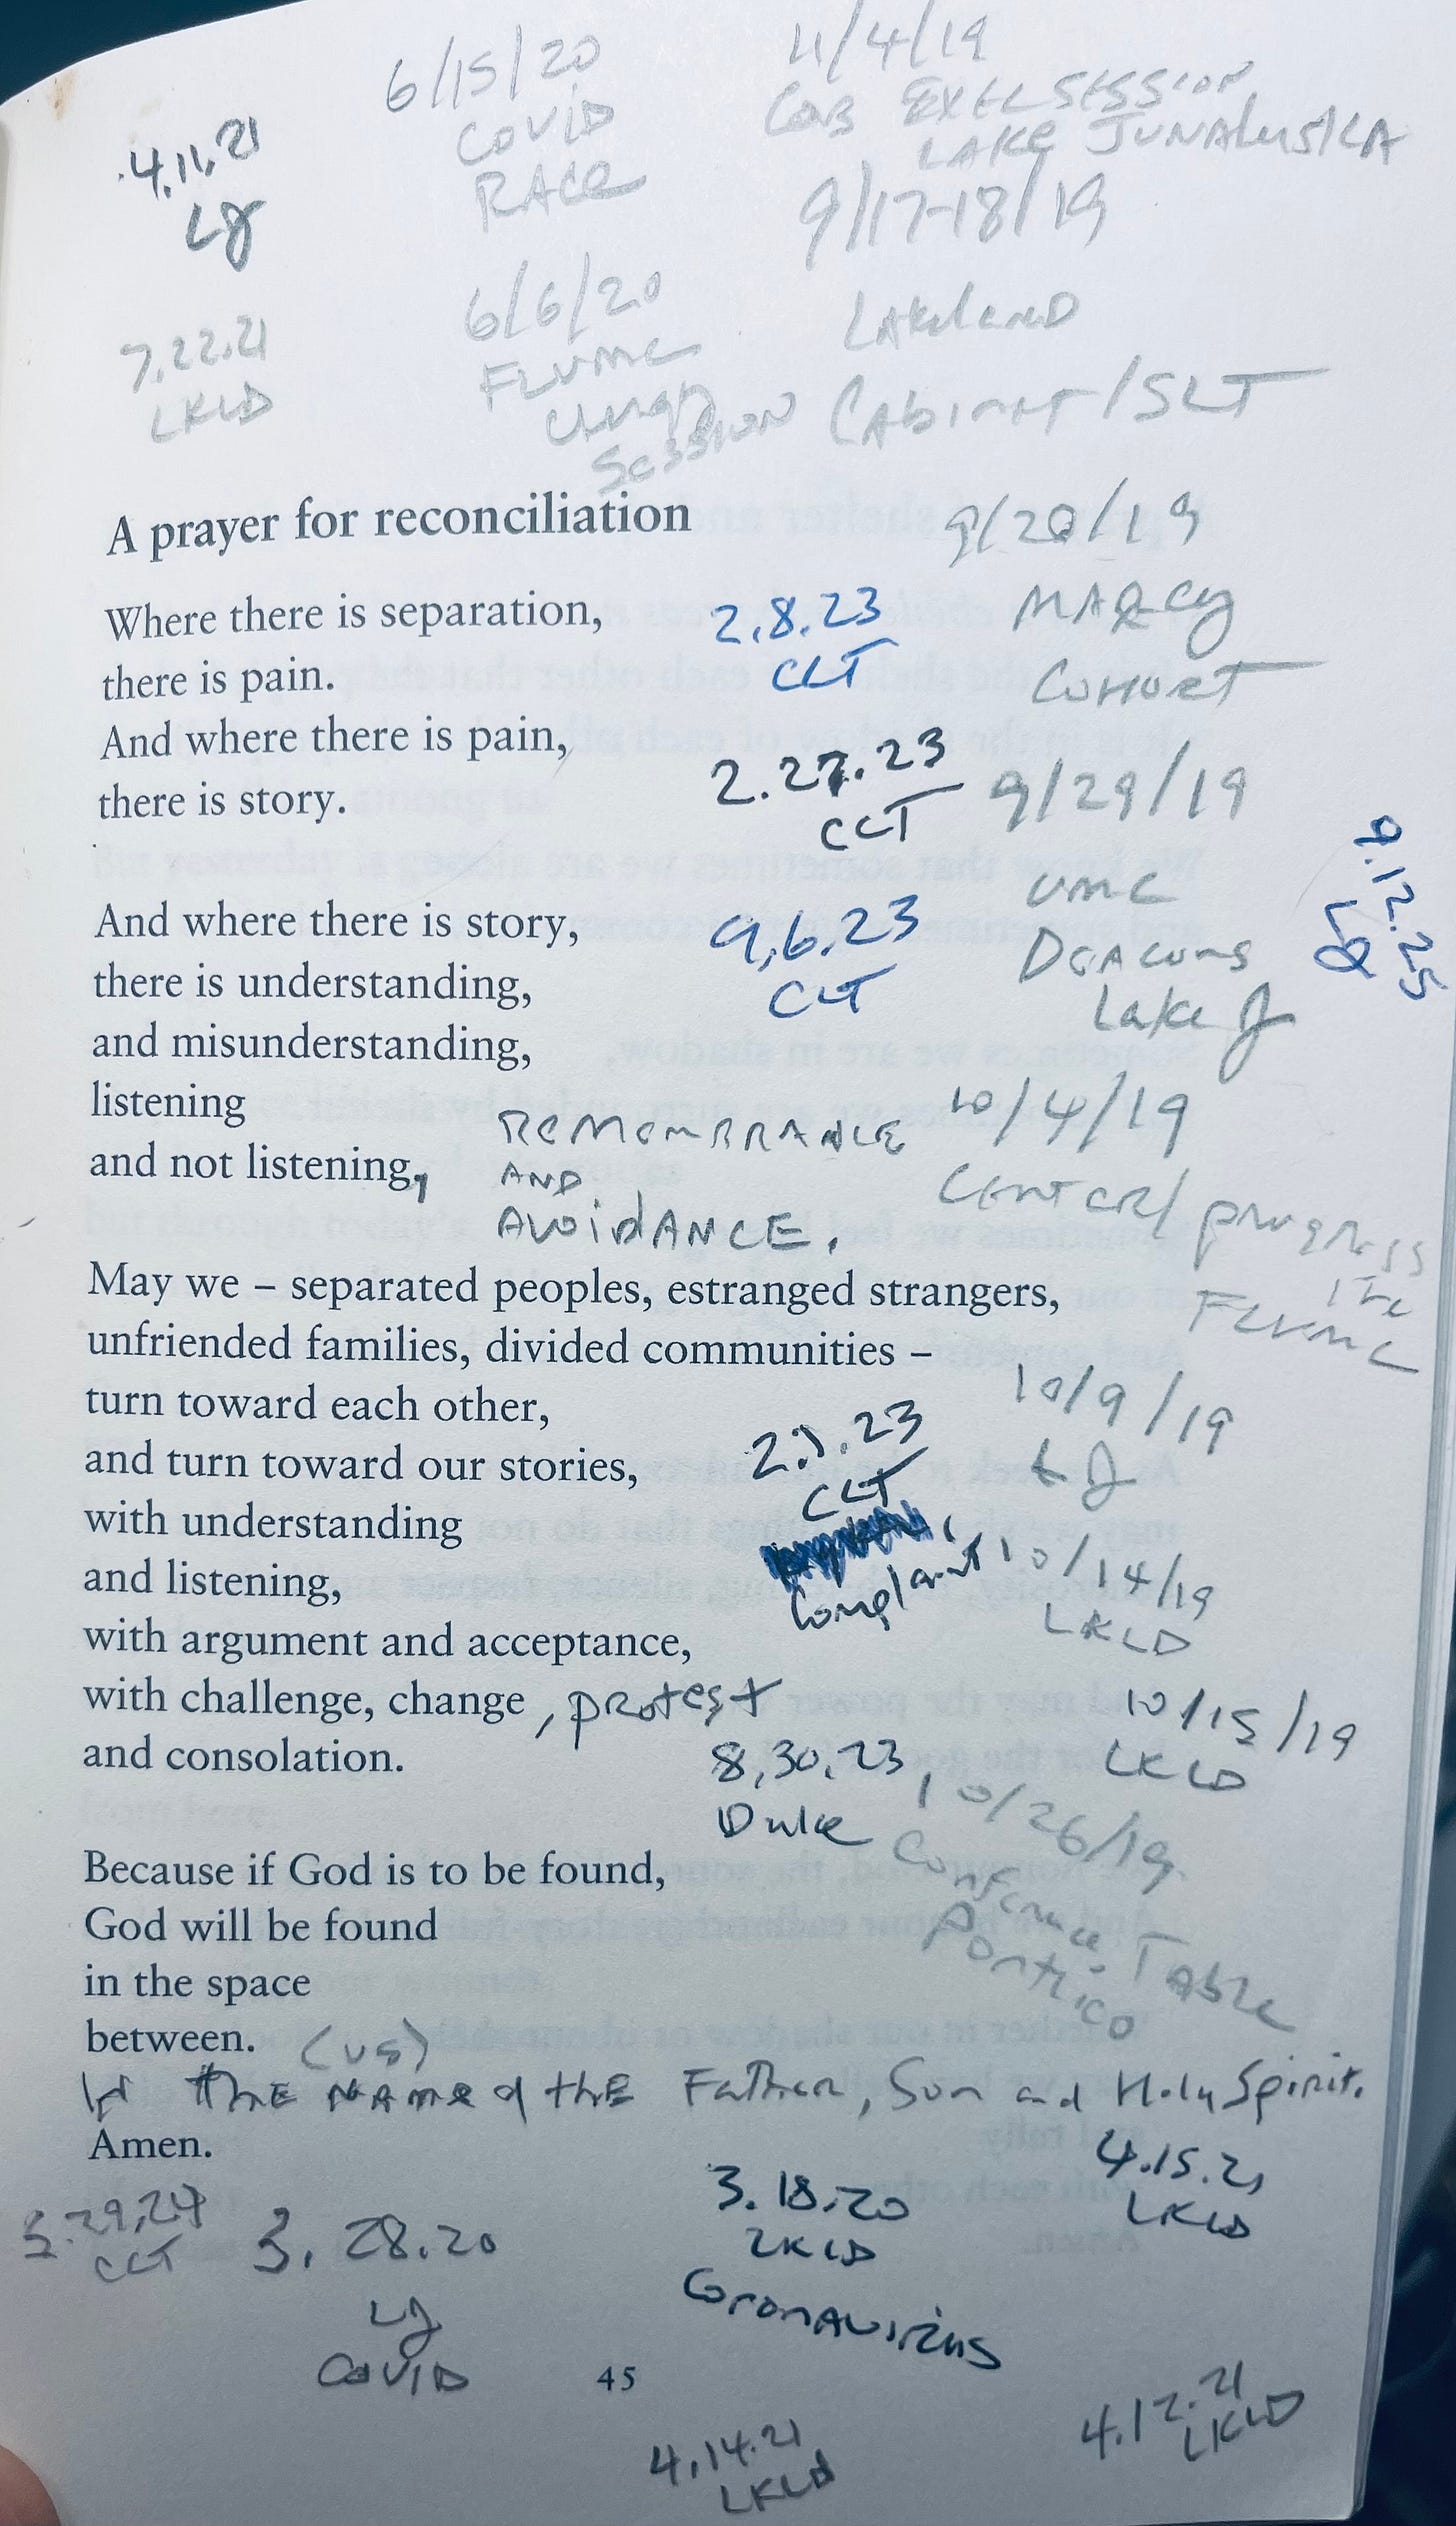 6/15/20
COVID
RACE
11/4/19
COB EXEC SESSION
LAKE JUNALUSKA
4.11.21
LJ
9/17-18/19
Lakeland
Cabinet/SLT
6/6/20
FLUMC
Clergy
Session
7.22.21
LKLD
A prayer for reconciliation
9/20/19
MARCY
COHORT
Where there is separation,
there is pain.
And where there is pain,
there is story.
2.8.23
CLT
2.27.23
CLT
9/29/19
UMC
Deacons
Lake J
9.12.25
And where there is story,
there is understanding,
and misunderstanding,
listening
and not listening,
9.6.23
CLT
REMEMBRANCE
AND
AVOIDANCE.
10/4/19
Center/progress
FLUMC
May we – separated peoples, estranged strangers,
unfriended families, divided communities –
turn toward each other,
and turn toward our stories,
with understanding
and listening,
with argument and acceptance,
with challenge, change, protest
and consolation.
10/9/19
LJ
CLT
Complaint
10/14/19
LKLD
10/15/19
LKLD
8.30.23
Duke
10/26/19
Conference Table
Portico
Because if God is to be found,
God will be found
in the space
between. (us)
IN THE NAME of the Father, Son and Holy Spirit.
Amen.
4.15.21
LKLD
3.18.20
LKLD
Coronavirus
CLT
3.28.20
LJ
COVID
45
4.14.21
LKLD
4.12.21
LKLD